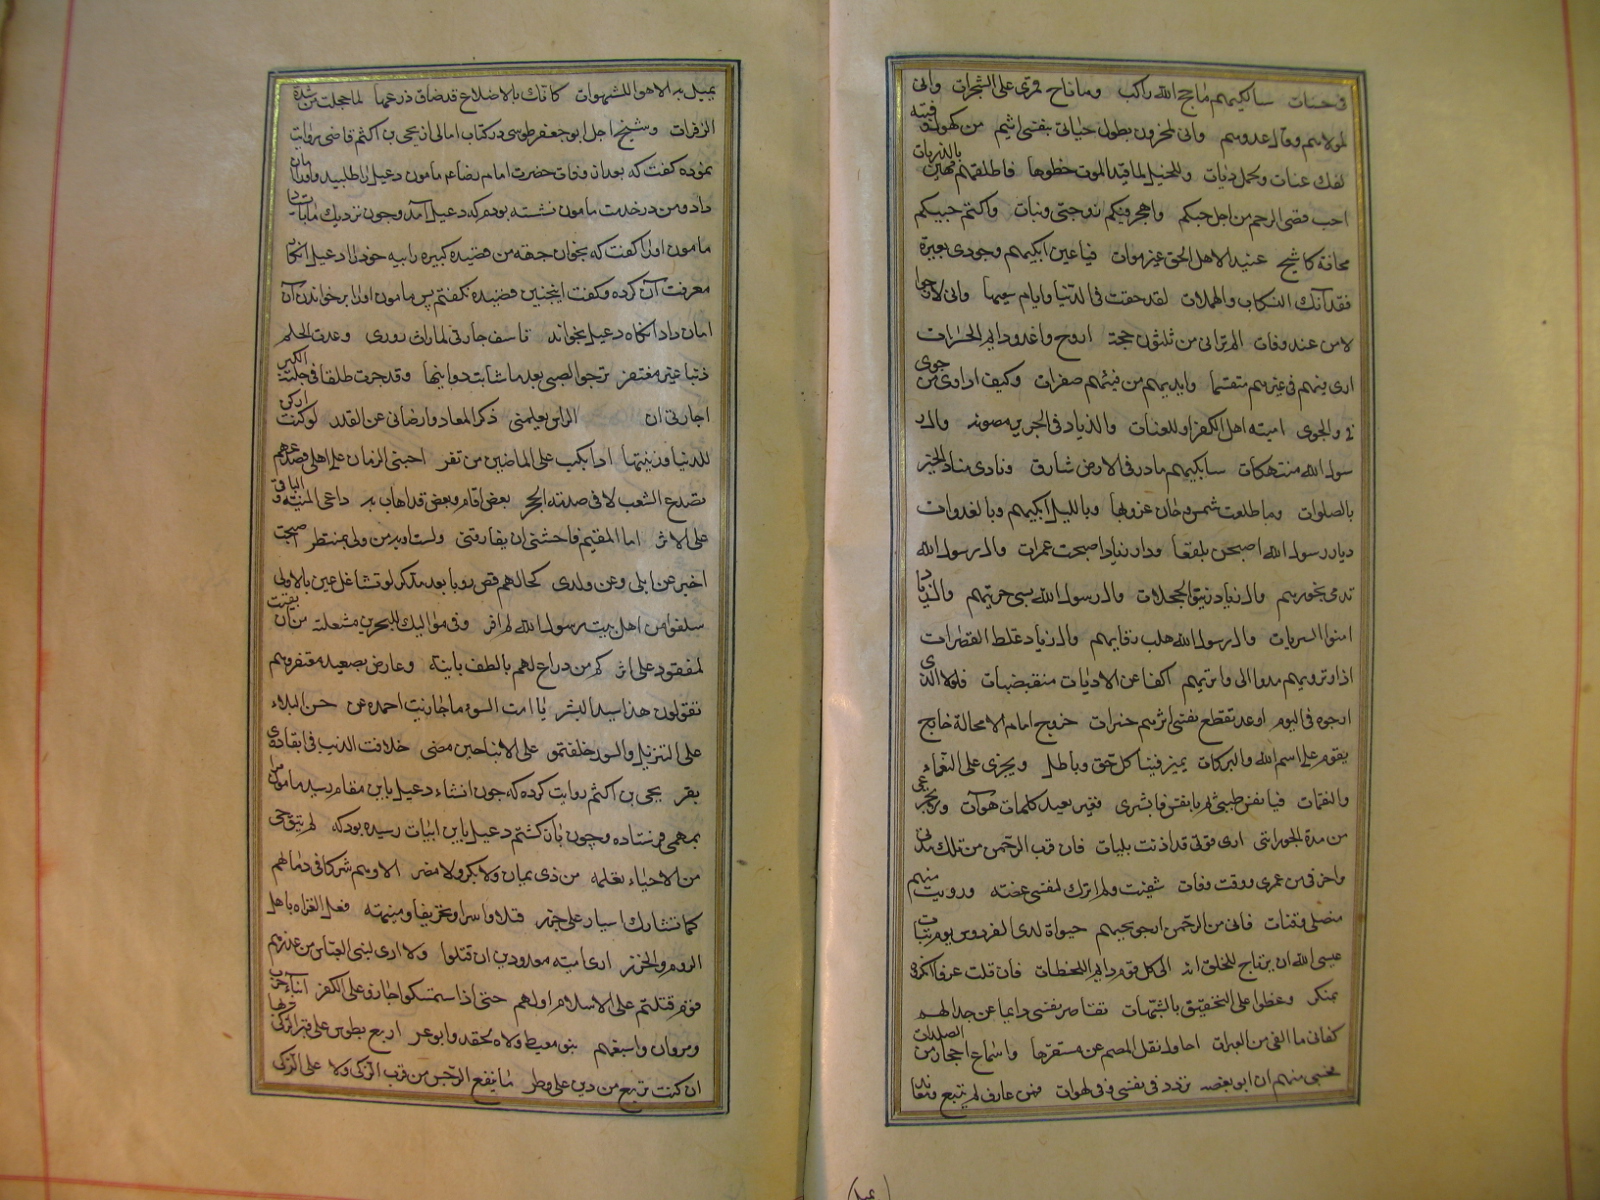 فی حسنات سابکیهم ماحج الله راکب وما ناح قمری علی الشجرات وانی
لمولاهم وقال عدوهم وانی لمحزون بطول حیاتی بنفسی انتم من کهول وفتیه
لفک عنات ولحمل دیات وللخیل لما قید الموت خطوها فاطلقتم منهن بالذربات
احب قصی الرحم من اجل حبکم واهجر فیکم زوجتی وبنات واکتم حبیکم
مخافة کاشح عنید لاهل الحق غیر موات فیا عین ابکیهم وجودی بعبرة
فقد آنک التسکاب والهملات لقد خفت فی الدنیا وایام سعیها وانی لارجوا
لامن عند وفات الم ترانی من ثلثون حجة اروح واغدو دایم الحسرات
اری فیئهم فی غیرهم متقسما وایدیهم من فیئهم صفرات وکیف اداوی من جوی
والجوی امیته اهل الکفر واللعنات وال زیاد فی الحریر مصونه وال ر
سول الله منتهکات سابکیهم ما ذر فی الارض شارق ونادی مناد الخیر
بالصلوات وما طلعت شمس وحان غروبها وباللیل ابکیهم وبالغدوات
دیار رسول الله اصبحن بلقعا ودار زیاد اصبحت عمرات وال رسول الله
تدمی نحورهم وال زیاد زینوا الحجلات وال رسول الله یسبی حریمهم وال زیاد
امنوا السربات وال رسول الله هلب رقابهم وال زیاد غلظ القصرات
اذا وتروا مدوا الی واتریهم اکفا عن الاوتار منقبضات فلولا الذی
ارجوه فی الیوم او غد تقطع نفسی اثرهم حسرات خروج امام لا محالة خارج
یقوم علی اسم الله والبرکات یمیز فینا کل حق وباطل ویجزی علی النعماء
والنقمات فیا نفس طیبی ثم یا نفس فابشری فغیر بعید کلما هوآت ولا تجزعی
من مدة الجور اننی اری قوتی قد اذنت بلیات فان قرب الرحمن من تلک مدتی
واخر فی من عمری ووقت وفات شفیت ولم اترک لنفسی غصه ورویت منهم
منصلی وقنات فانی من الرحمن ارجو بحبهم حیوة لدی الفردوس یوم تبات
عیسی الله ان یرتاح للخلق انه الی کل قوم دایم اللحظات فان قلت عرفا انکروه
بمنکر وغطوا علی التحقیق بالشبهات تقاصر نفسی دایما عن جدالهم
کفانی ما القی من العبرات احاول نقل الصم عن مستقرها واسماع احجار من الصلدات
فحسبی منهم ان ابوء بغصه تردد فی نفسی وفی لهوات فمن عارف لم ینتفع ومعاند
یمیل به الاهوا للشهوات کانک بالاضلاع قد ضاق ذرعها لما حملت من شدة
الزفرات وشیخ اجل ابو جعفر طوسی در کتاب امالی از یحی بن اکثم قاضی روایت
نموده گفت که بعد از وفات حضرت امام رضا عم مامون دعبل را طلبید واو را امان
داد ومن در خدمت مامون نشسته بودم که دعبل آمد وچون نزدیک ما
مامون او را گفت که بخوان جهة من قصیده کبیره رابیه خود را دعبل انکار
معرفت آن کرده وگفت اینچنین قصیده نگفتم پس مامون او را بر خواندن آن
امان داد آنگاه دعبل بخواند تاسف جارتی لما رات زوری وعدت الحلم
ذنبا غیر مغتفر ترجو الصبی بعد ما شابت ذوایبها وقد جرت طلقا فی حلبة الکبر
اجارتی ان الراس یعلمنی ذکر المعاد وارضانی عن القدر لو کنت ارکن
للدنیا وزینتها اذا بکیت علی الماضین من نفر احنی الزمان علی اهلی فصدعهم
تصدع الشعب لاقی صدمة الحجر بعض اقام وبعض قد اهاب به داعی المنیه والباقی
علی الاثر اما المقیم فاخشی ان یفارقنی ولست اوبة من ولی بمنتظر اصبحت
اخبر عن اهلی وعن ولدی کحالم قص رویا بعد مدکر لو تشاغل عین بالاولی
سلفوا من اهل بیت رسول الله لم اقر وفی موالیک للحرین مشغلة من ان تبیت
لمفقود علی اثر کم من ذراع لهم بالطف باینه وعارض بصعید منعفر وهم
تقولون هذا سید البشر یا امت السوء ما جازیت احمد عن حسن البلاء
علی التنزیل والسور خلفتموه علی الابنا حین مضی خلافت الذئب فی ابقار ذی
بقر یحیی بن اکثم روایت کرده که چون انشاء دعبل باین مقام رسید مامون مرا
بمهمی فرستاده وچون باز گشتم دعبل باین ابیات رسیده بود که لم یبق حی
من الاحیاء نعلمه من ذی یمان ولا بکر ولا مضر الا وهم شرکا فی دمائهم
کما تشارک ایسار علی جزر قتلا واسرا وتخریفا ومنهبه فعل الغزاه باهل
الروم والخزر اری امیه معذورین ان قتلوا ولا اری لبنی العباس من عذرهم
قوم قتلتم علی الاسلام اولهم حتی اذا ستمسکوا جازوا علی الکفر ابناء حرب
ومروان واسرتهم بنو معیط ولاة الحقد وابو عر اربع بطوس علی قبر الزکی
ان کنت تربع من دین علی وطر ما ینفع الرجس من قرب الزکی ولا علی الزکی